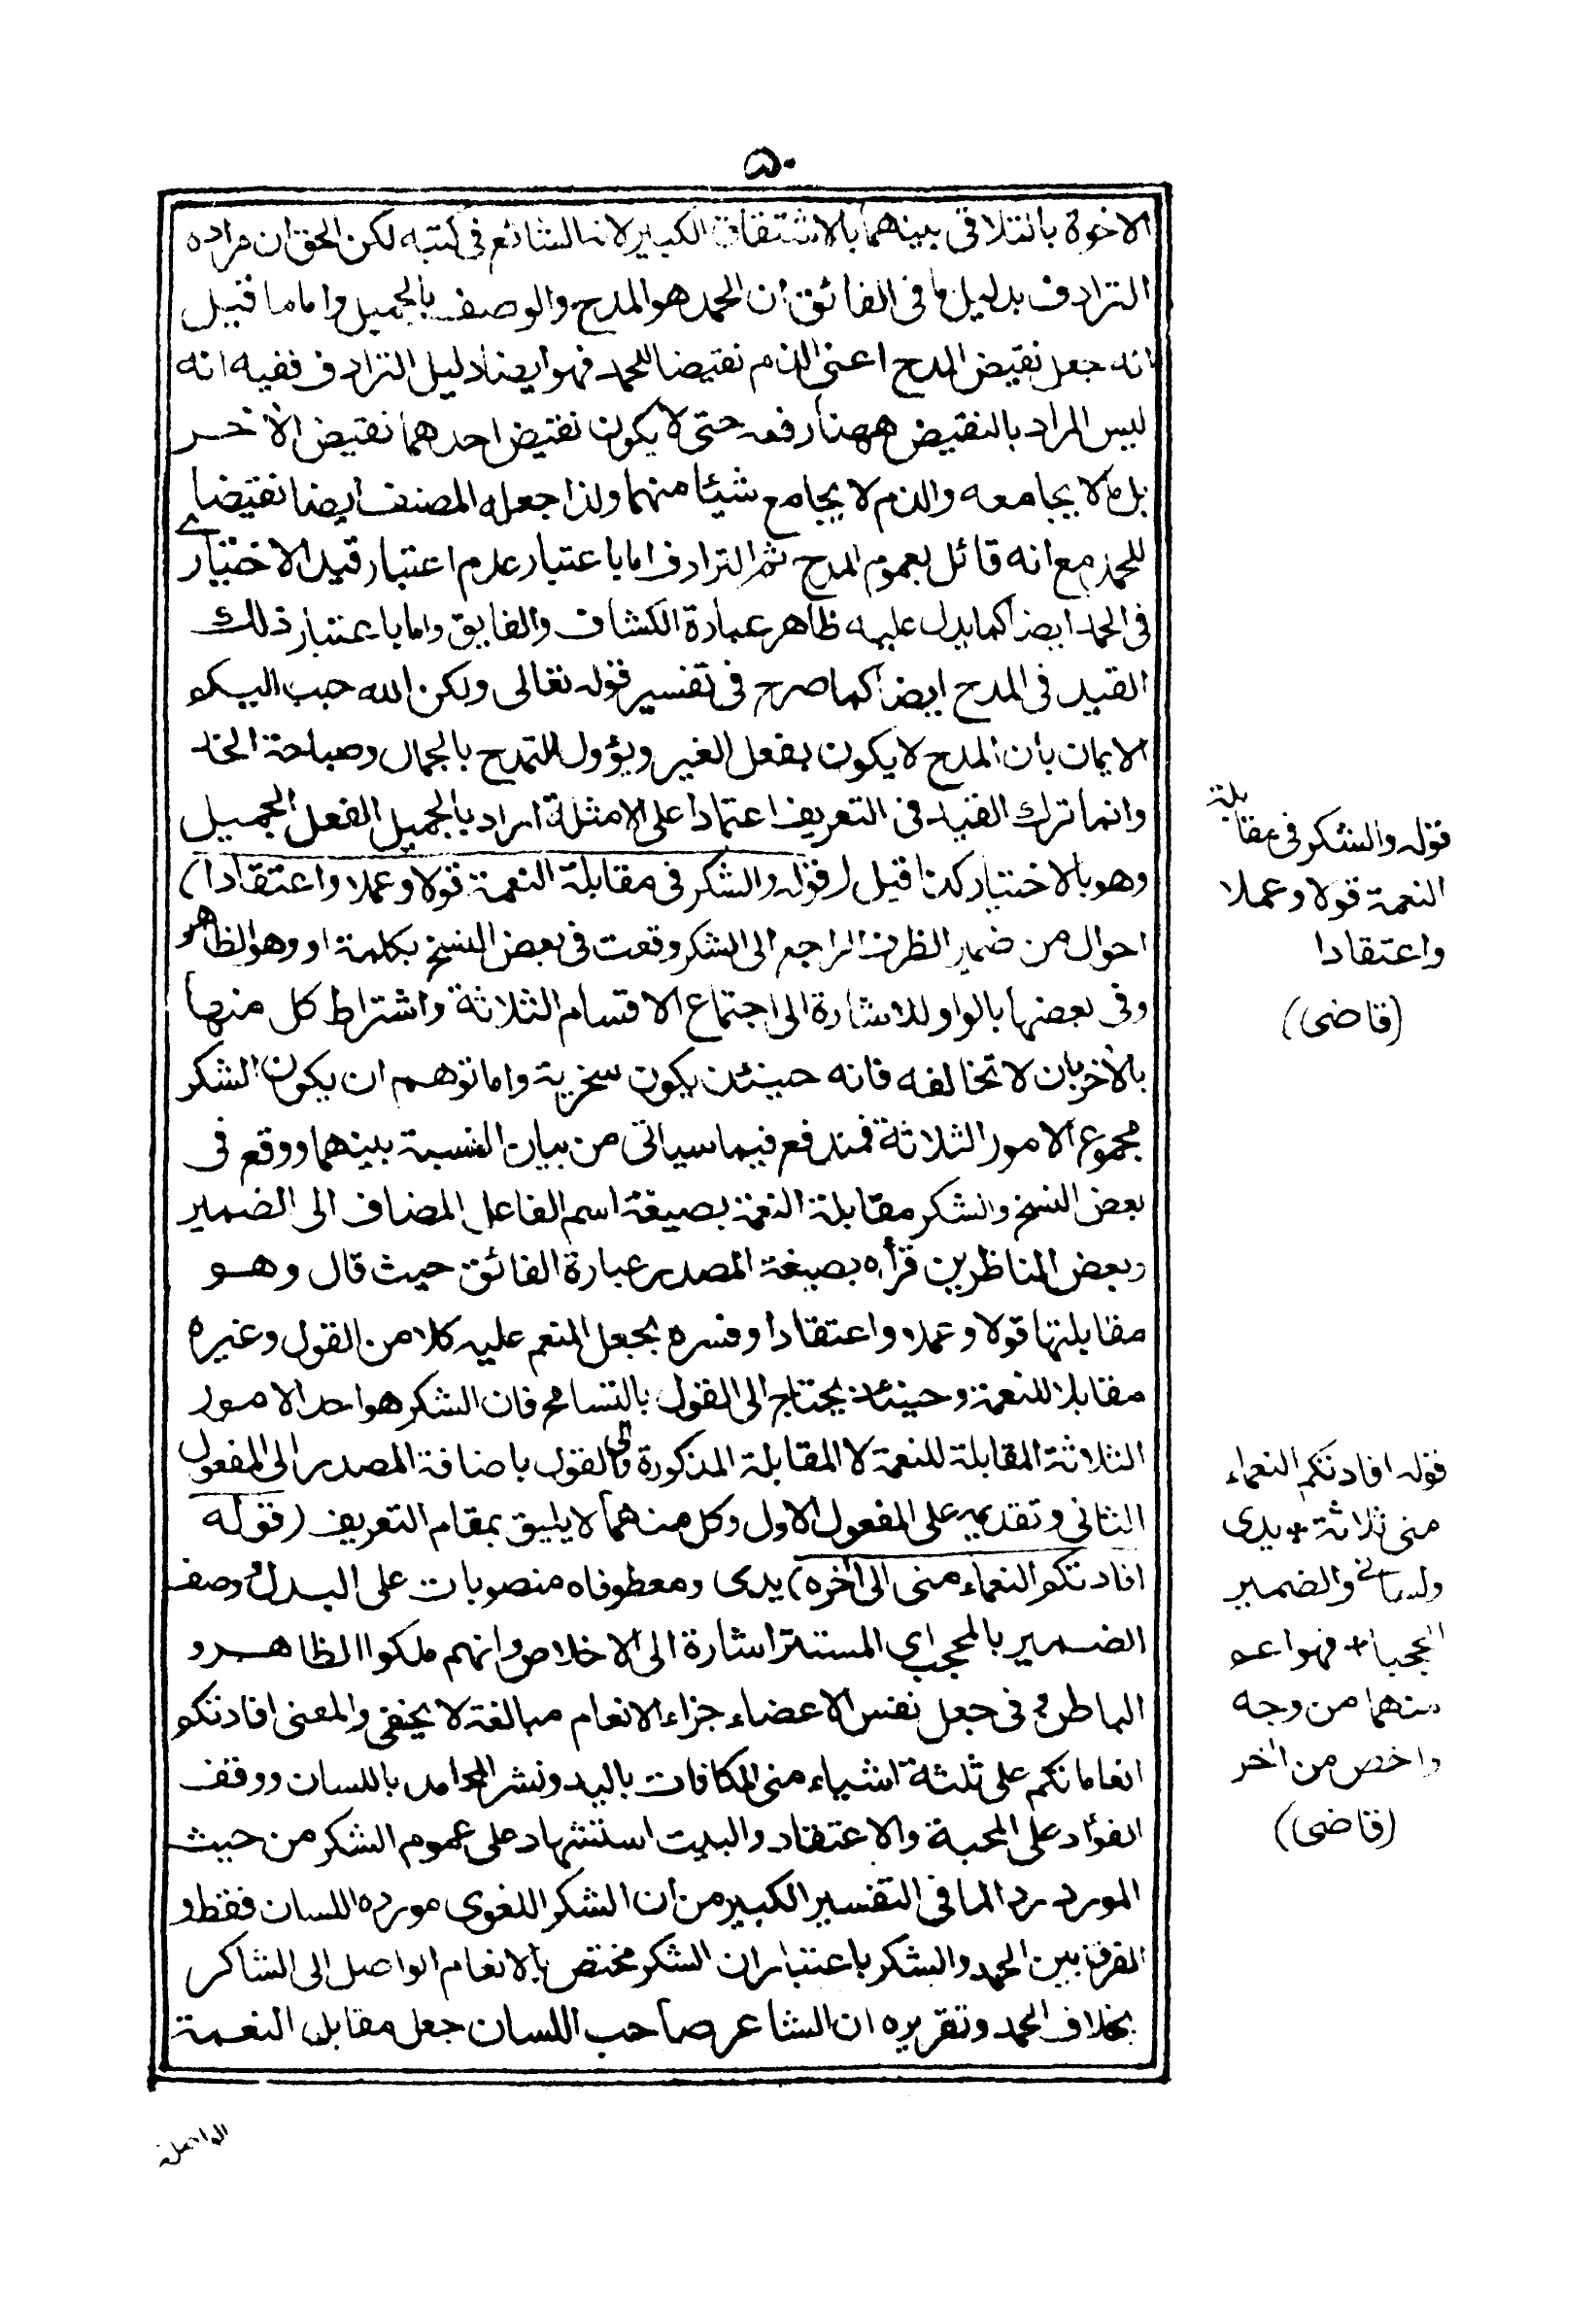 ٥٠
الاخوة بالتلاقى بينهما بالاشتقاق الكبير لانه الشائع فى كتبه لكن الحق ان مراده
الترادف بدليل ما فى الفائق ان الحمد هو المدح والوصف بالجميل واما ما قيل
انه جعل نقيض المدح اعنى الذم نقيضا للحمد فهو ايضا دليل الترادف ففيه انه
ليس المراد بالنقيض ههنا رفعه حتى لا يكون نقيض احدهما نقيض الأخر
بل ما لا يجامعه والذم لا يجامع شيئا منهما ولذا جعله المصنف ايضا نقيضا
للحمد مع انه قائل بعموم المدح ثم الترادف اما باعتبار عدم اعتبار قيد الاختيارى
فى الحمد ايضا كما يدل عليه ظاهر عبارة الكشاف والفايق واما باعتبار ذلك
القيد فى المدح ايضا كما صرح فى تفسير قوله تعالى ولكن الله حبب اليكم
الايمان بان المدح لا يكون بفعل الغير ويؤول التمدح بالجمال وصباحة الخد
وانما ترك القيد فى التعريف اعتمادا على الامثلة او اراد بالجميل الفعل الجميل
وهو بالاختيار كذا قيل (قوله والشكر فى مقابلة النعمة قولا وعملا واعتقادا)
احوال من ضمير الظرف الراجع الى الشكر وقعت فى بعض النسخ بكلمة او وهو الظاهر
وفى بعضها بالواو للاشارة الى اجتماع الاقسام الثلاثة واشتراط كل منها
بالأخر بان لا تخالفه فانه حينئذ يكون سخرية واما توهم ان يكون الشكر
مجموع الامور الثلاثة فمندفع فيما سياتى من بيان النسبة بينهما ووقع فى
بعض النسخ والشكر مقابلة النعمة بصيغة اسم الفاعل المضاف الى الضمير
وبعض الناظرين قرأه بصيغة المصدر عبارة الفائق حيث قال وهو
مقابلتها قولا وعملا واعتقادا وفسره بجعل المنعم عليه كلا من القول وغيره
مقابلا للنعمة وحينئذ يحتاج الى القول بالتسامح فان الشكر هو احد الامور
الثلاثة المقابلة للنعمة لا المقابلة المذكورة والى القول باضافة المصدر الى المفعول
الثانى وتقديمه على المفعول الاول وكل منهما لا يليق بمقام التعريف (قوله
افادتكم النعماء منى الى أخره) يدى ومعطوفاه منصوبات على البدل و وصف
الضمير بالمحجب اى المستتر اشارة الى الاخلاص وانهم ملكوا الظاهر و
الباطن و فى جعل نفس الاعضاء جزاء الانعام مبالغة لا يخفى والمعنى افادتكم
انعاماتكم على ثلثة اشياء منى المكافات باليد ونشر المحامد باللسان ووقف
الفؤاد على المحبة والاعتقاد والبيت استشهاد على عموم الشكر من حيث
المورد رد الما فى التفسير الكبير من ان الشكر اللغوى مورده اللسان فقط و
الفرق بين الحمد والشكر باعتبار ان الشكر مختص بالانعام الواصل الى الشاكر
بخلاف الحمد وتقريره ان الشاعر صاحب اللسان جعل مقابل النعمة
قوله والشكر فى مقابلة
النعمة قولا وعملا
واعتقادا
(قاضى)
قوله افادتكم النعماء
منى ثلاثة * يدى
ولسانى والضمير
المحجبا * فهو اعم
منهما من وجه
واخص من أخر
(قاضى)
الواصلة